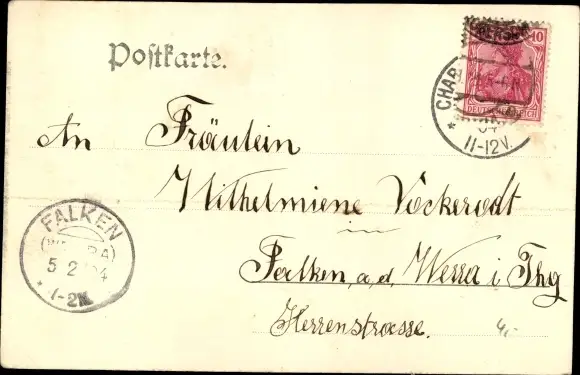 Postkarte.
10
DEUTSCHES REICH
CHAR
04
11-12V.
An Fräulein
Wilhelmiene Vockerodt
in
Falken a.d. Werra i Thg
Herrenstrasse.
4,-
FALKEN
(WERRA)
5 2 04
1-2N